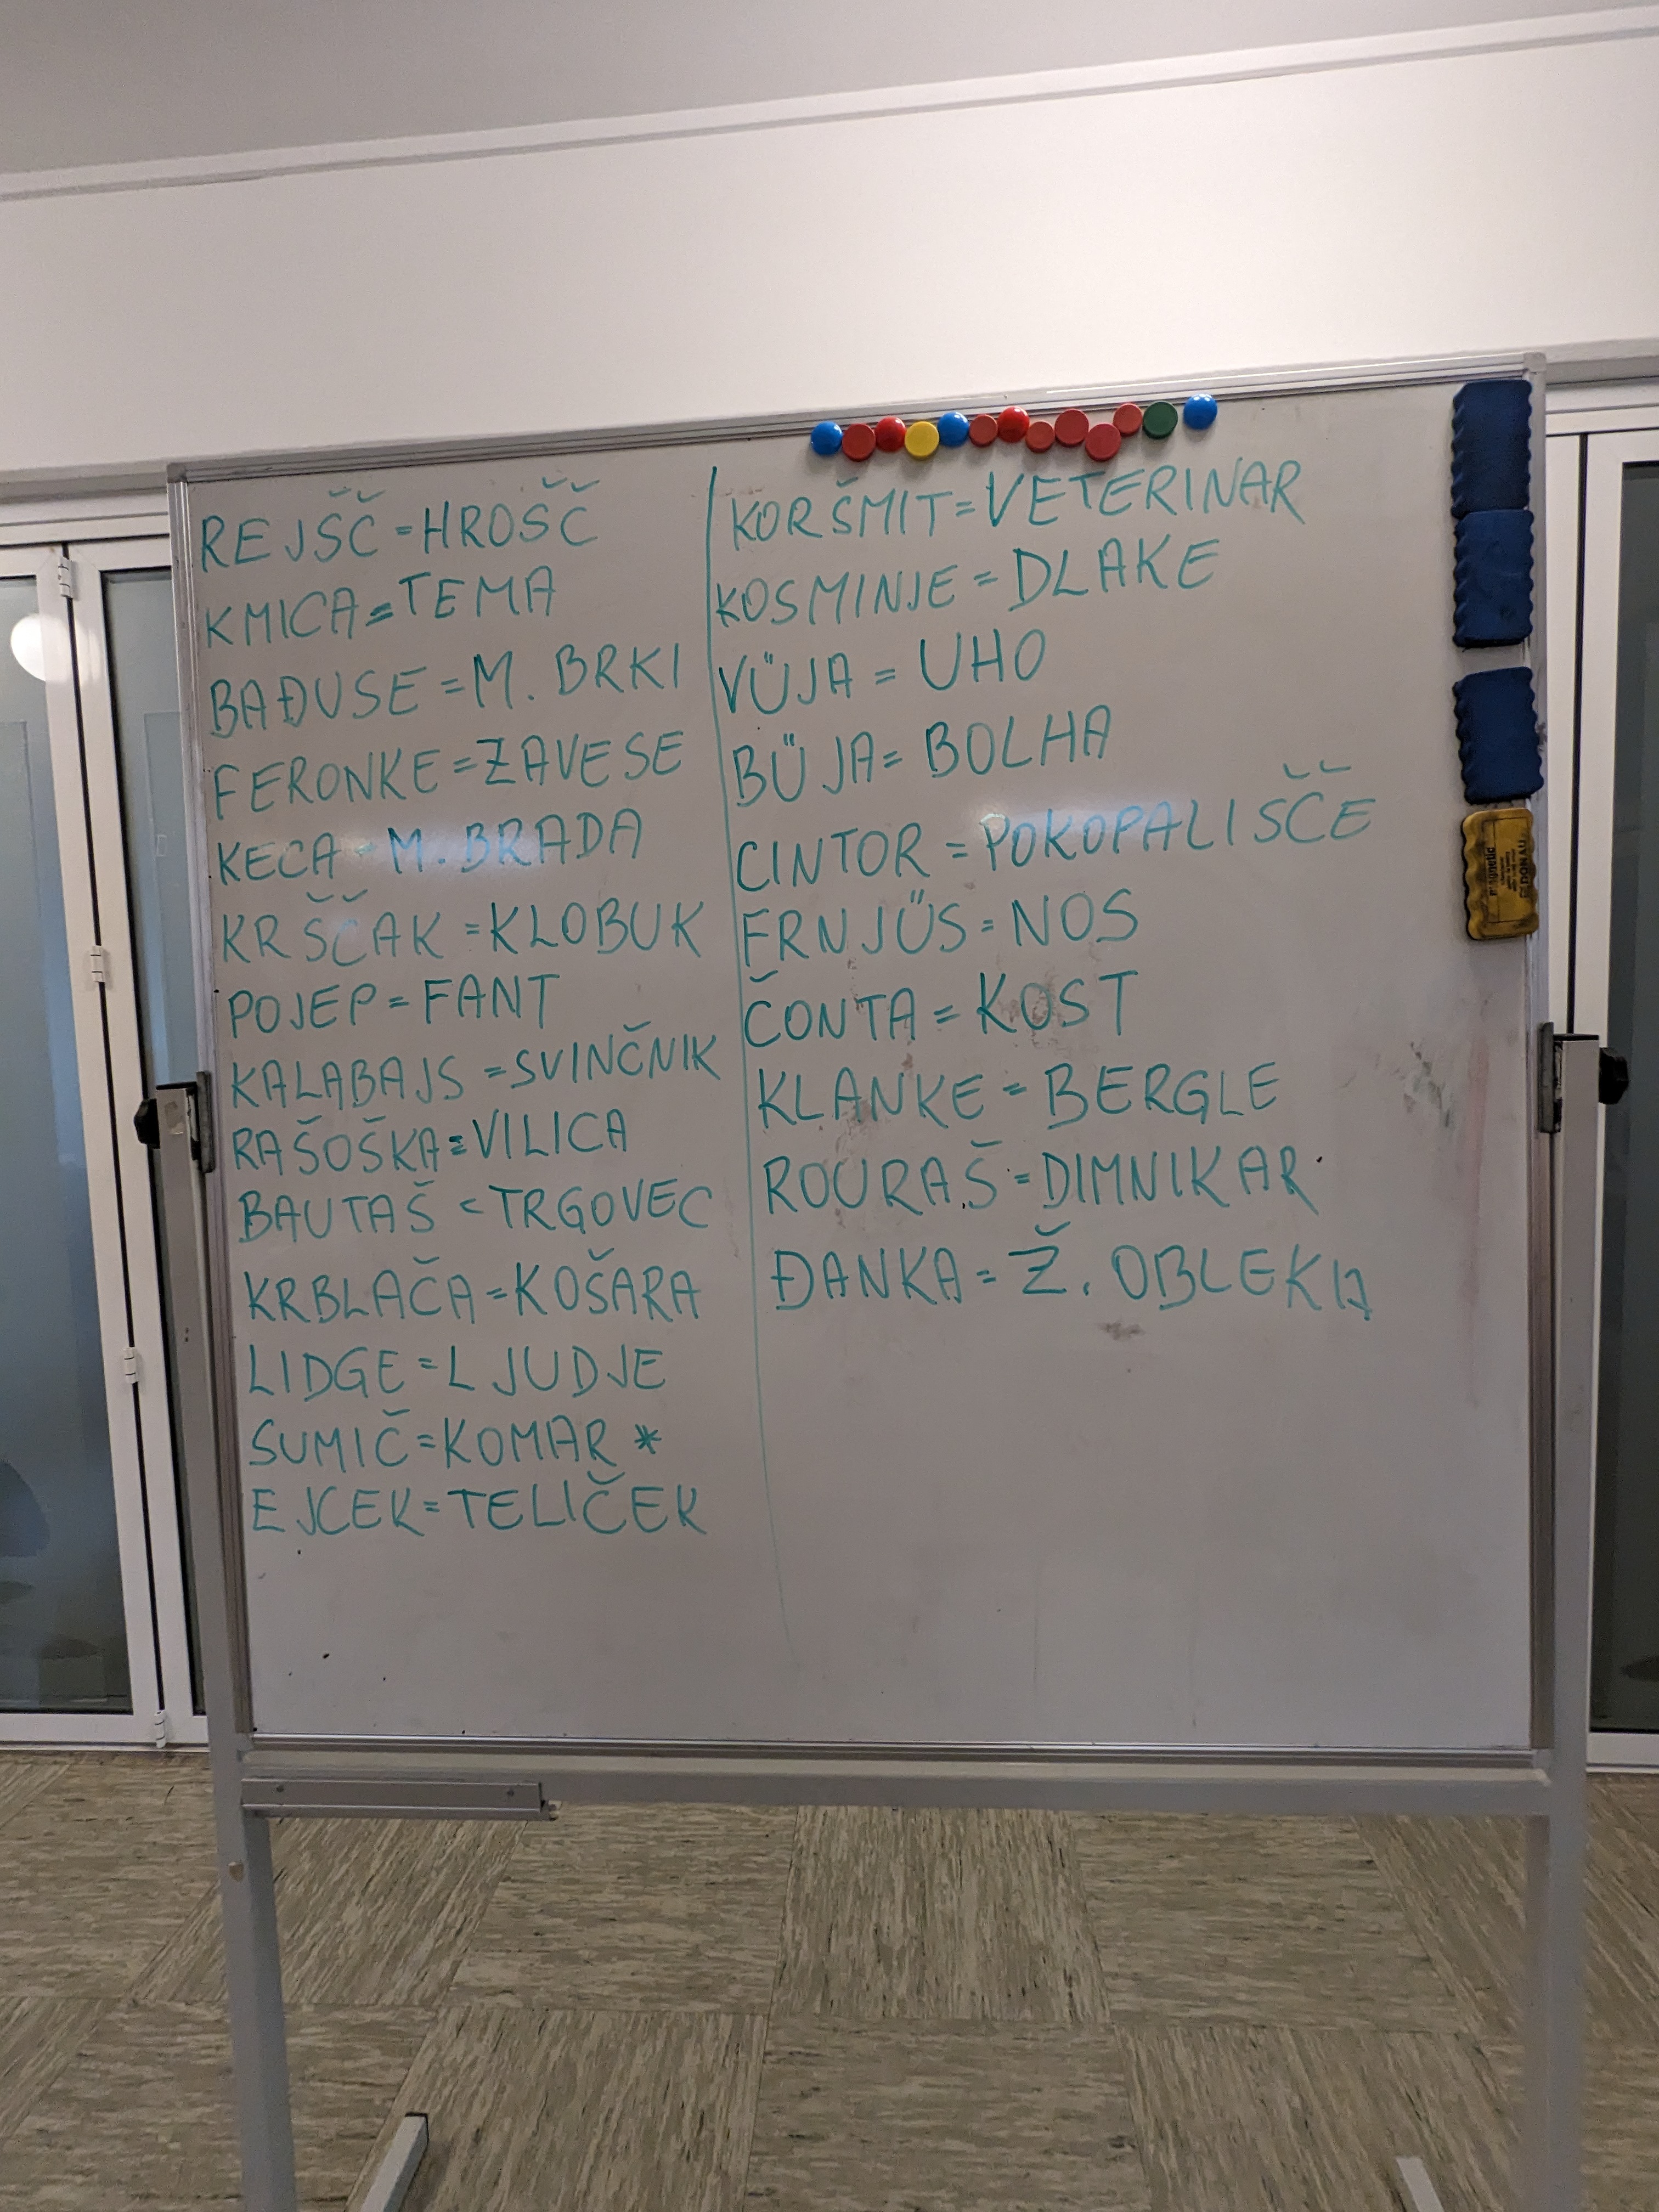 REJŠČ = HROŠČ
KMICA = TEMA
BAĐUSE = M. BRKI
FERONKE = ZAVESE
KECA = M. BRADA
KRŠČAK = KLOBUK
POJEP = FANT
KALABAJS = SVINČNIK
RAŠOŠKA = VILICA
BAUTAŠ = TRGOVEC
KRBLAČA = KOŠARA
LIDGE = LJUDJE
SUMIČ = KOMAR *
EJCEK = TELIČEK
KORŠMIT = VETERINAR
KOSMINJE = DLAKE
VÜJA = UHO
BÜJA = BOLHA
CINTOR = POKOPALIŠČE
FRNJÜS = NOS
ČONTA = KOST
KLANKE = BERGLE
ROURAŠ = DIMNIKAR
ĐANKA = Ž. OBLEKA
EDONAU
magnetic